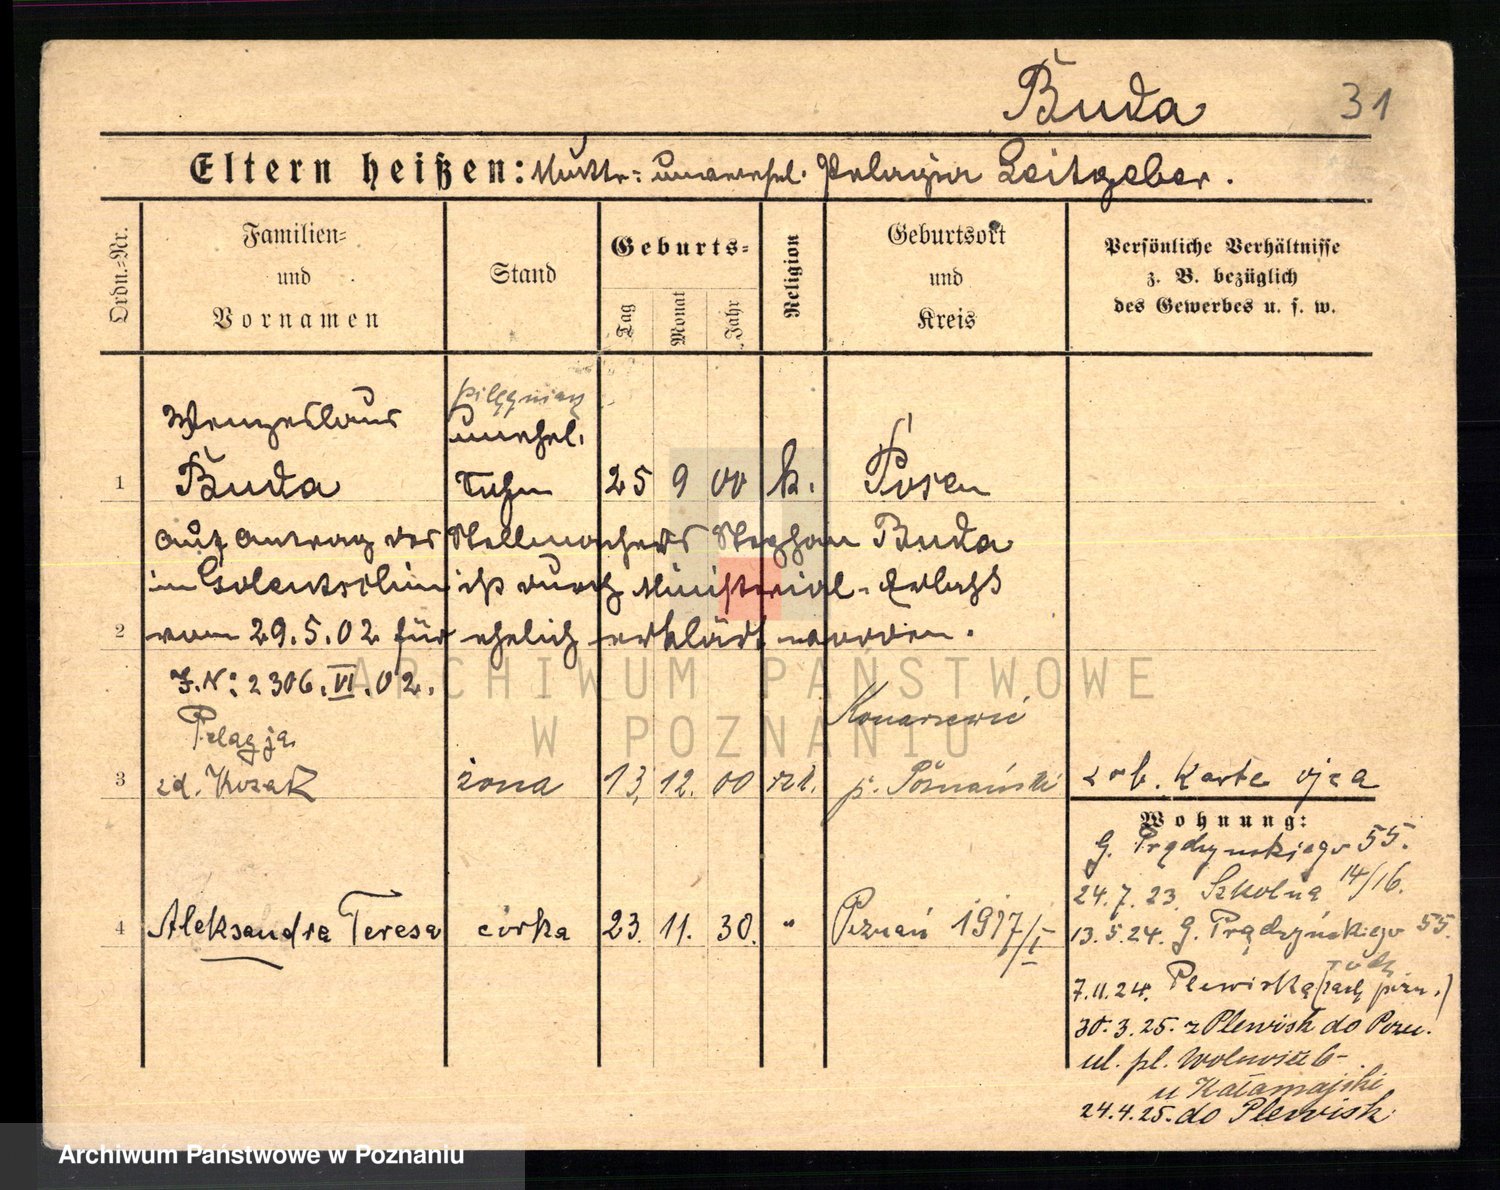 Buda
31
Eltern heißen: Mutter: unverehel. Pelagia Leitgeber.
Ordn.-Nr.
Familien-
und
Vornamen
Stand
Geburts-
Tag
Monat
Jahr
Religion
Geburtsort
und
Kreis
Persönliche Verhältnisse
z. B. bezüglich
des Gewerbes u. s. w.
Wenzeslaus
unehel.
1 Buda Sohn 25 9 00 k. Posen
Auf Antrag des Stellmachers Stephan Buda
in ist durch Ministerial-Erlaß
2 vom 29.5.02 für ehelich erklärt worden.
J.N: 2306.VI.02.
Pelagja
3 zd. Kozak żona 13. 12. 00 rzk. p. Poznański
zob. Karte ojca
Wohnung:
G. Prądzyńskiego 55.
24.7.23. Szkolna 14/16.
4 Aleksandra Teresa córka 23. 11. 30. " Poznań 1977/I
13.5.24. G. Prądzyńskiego 55.
7.11.24. Plewiska
30.3.25. z Plewisk do Pozn.
ul. pl.
u Kałamajski
24.4.25. do Plewisk
ARCHIWUM PAŃSTWOWE
W POZNANIU
Archiwum Państwowe w Poznaniu